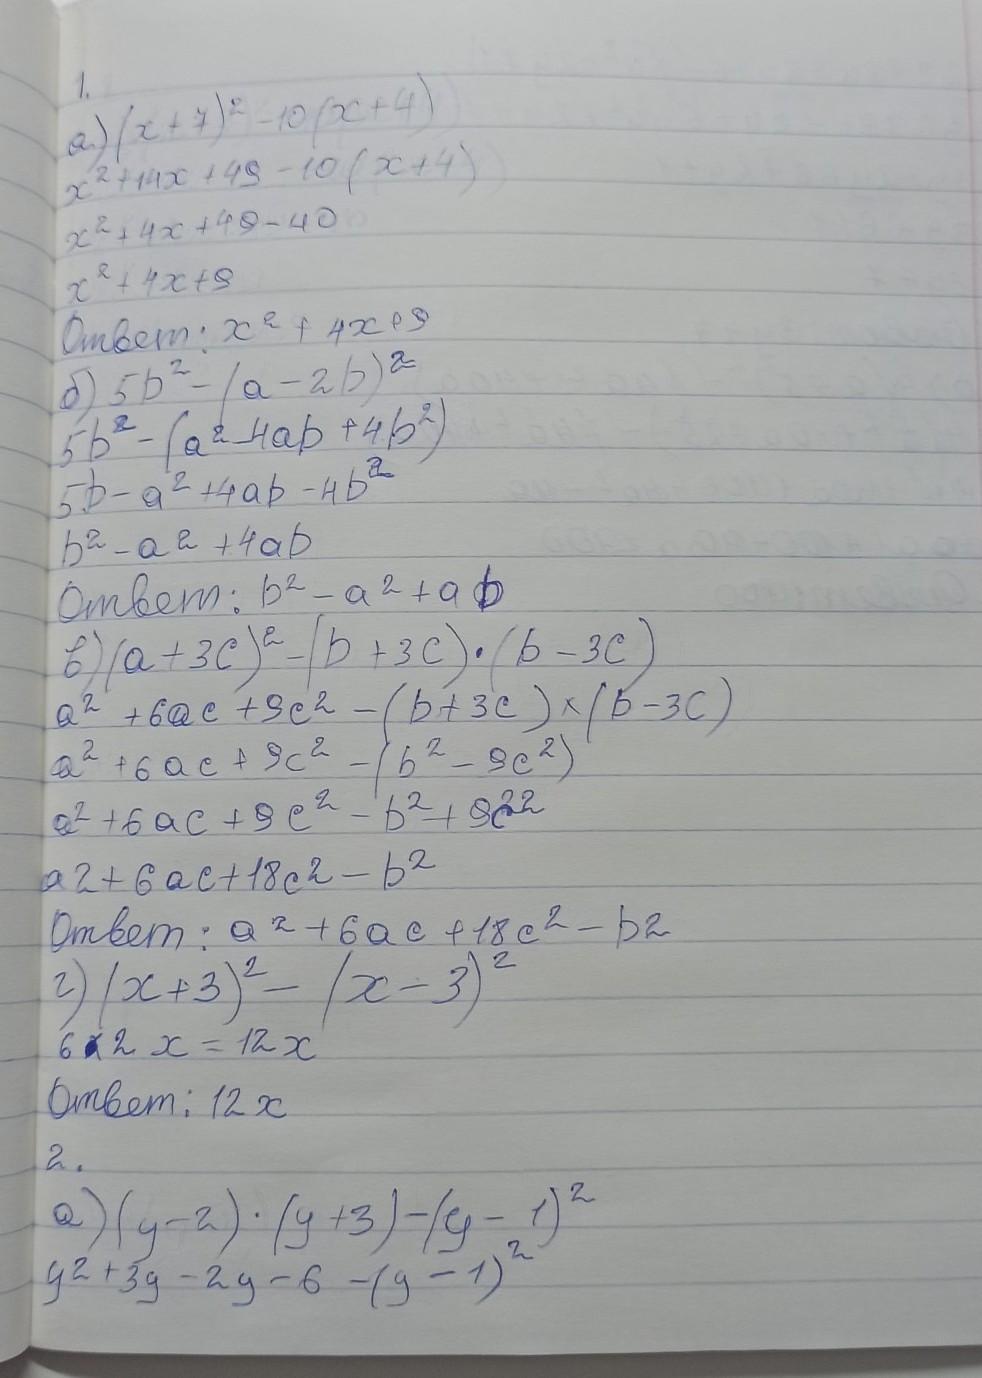 1.
а) (x+7)² -10(x+4)
x²+14x+49-10(x+4)
x²+4x+49-40
x²+4x+9
Ответ: x²+4x+9
б) 5b²-(a-2b)²
5b²-(a²-4ab+4b²)
5b-a²+4ab-4b²
b²-a²+4ab
Ответ: b²-a²+ab
в) (a+3c)²-(b+3c)·(b-3c)
a²+6ac+9c²-(b+3c)×(b-3c)
a²+6ac+9c²-(b²-9c²)
a²+6ac+9c²-b²+9c²²
a2+6ac+18c²-b²
Ответ: a²+6ac+18c²-b2
г) (x+3)²-(x-3)²
6·2x=12x
Ответ: 12x
2.
а) (y-2)·(y+3)-(y-1)²
y²+3y-2y-6-(y-1)²